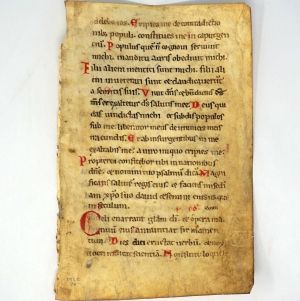 delebo eos. Eripies me de contradictio
nib; populi. constitues me in caput gen
tium. Populus que n cognovi servivit
michi. in auditu auris obedivit michi.
Filii alieni mentiti sunt michi. filii ali
eni inveterati sunt et claudicaverunt
a semitis suis. Vivit dns et benedictus ds
ms et exaltetur ds salutis mee. Deus qui
das vindictas michi. et subdis populos
sub me. liberator meus de inimicis meis
iracundis. Et ab insurgentibus in me
exaltabis me. a viro iniquo eripies me.
Propterea confitebor tibi in nationibus
dne. et nomini tuo psalmu dica. Magni
ficans salutes regis eius. et faciens mise
am xpo suo david et semini eius usque
in seculum.
Celi enarrant gliam di. et opera ma
nuum eius annuntiat firmamen
tum. Dies diei eructat verbu. et nox
nocti indicat scientia.